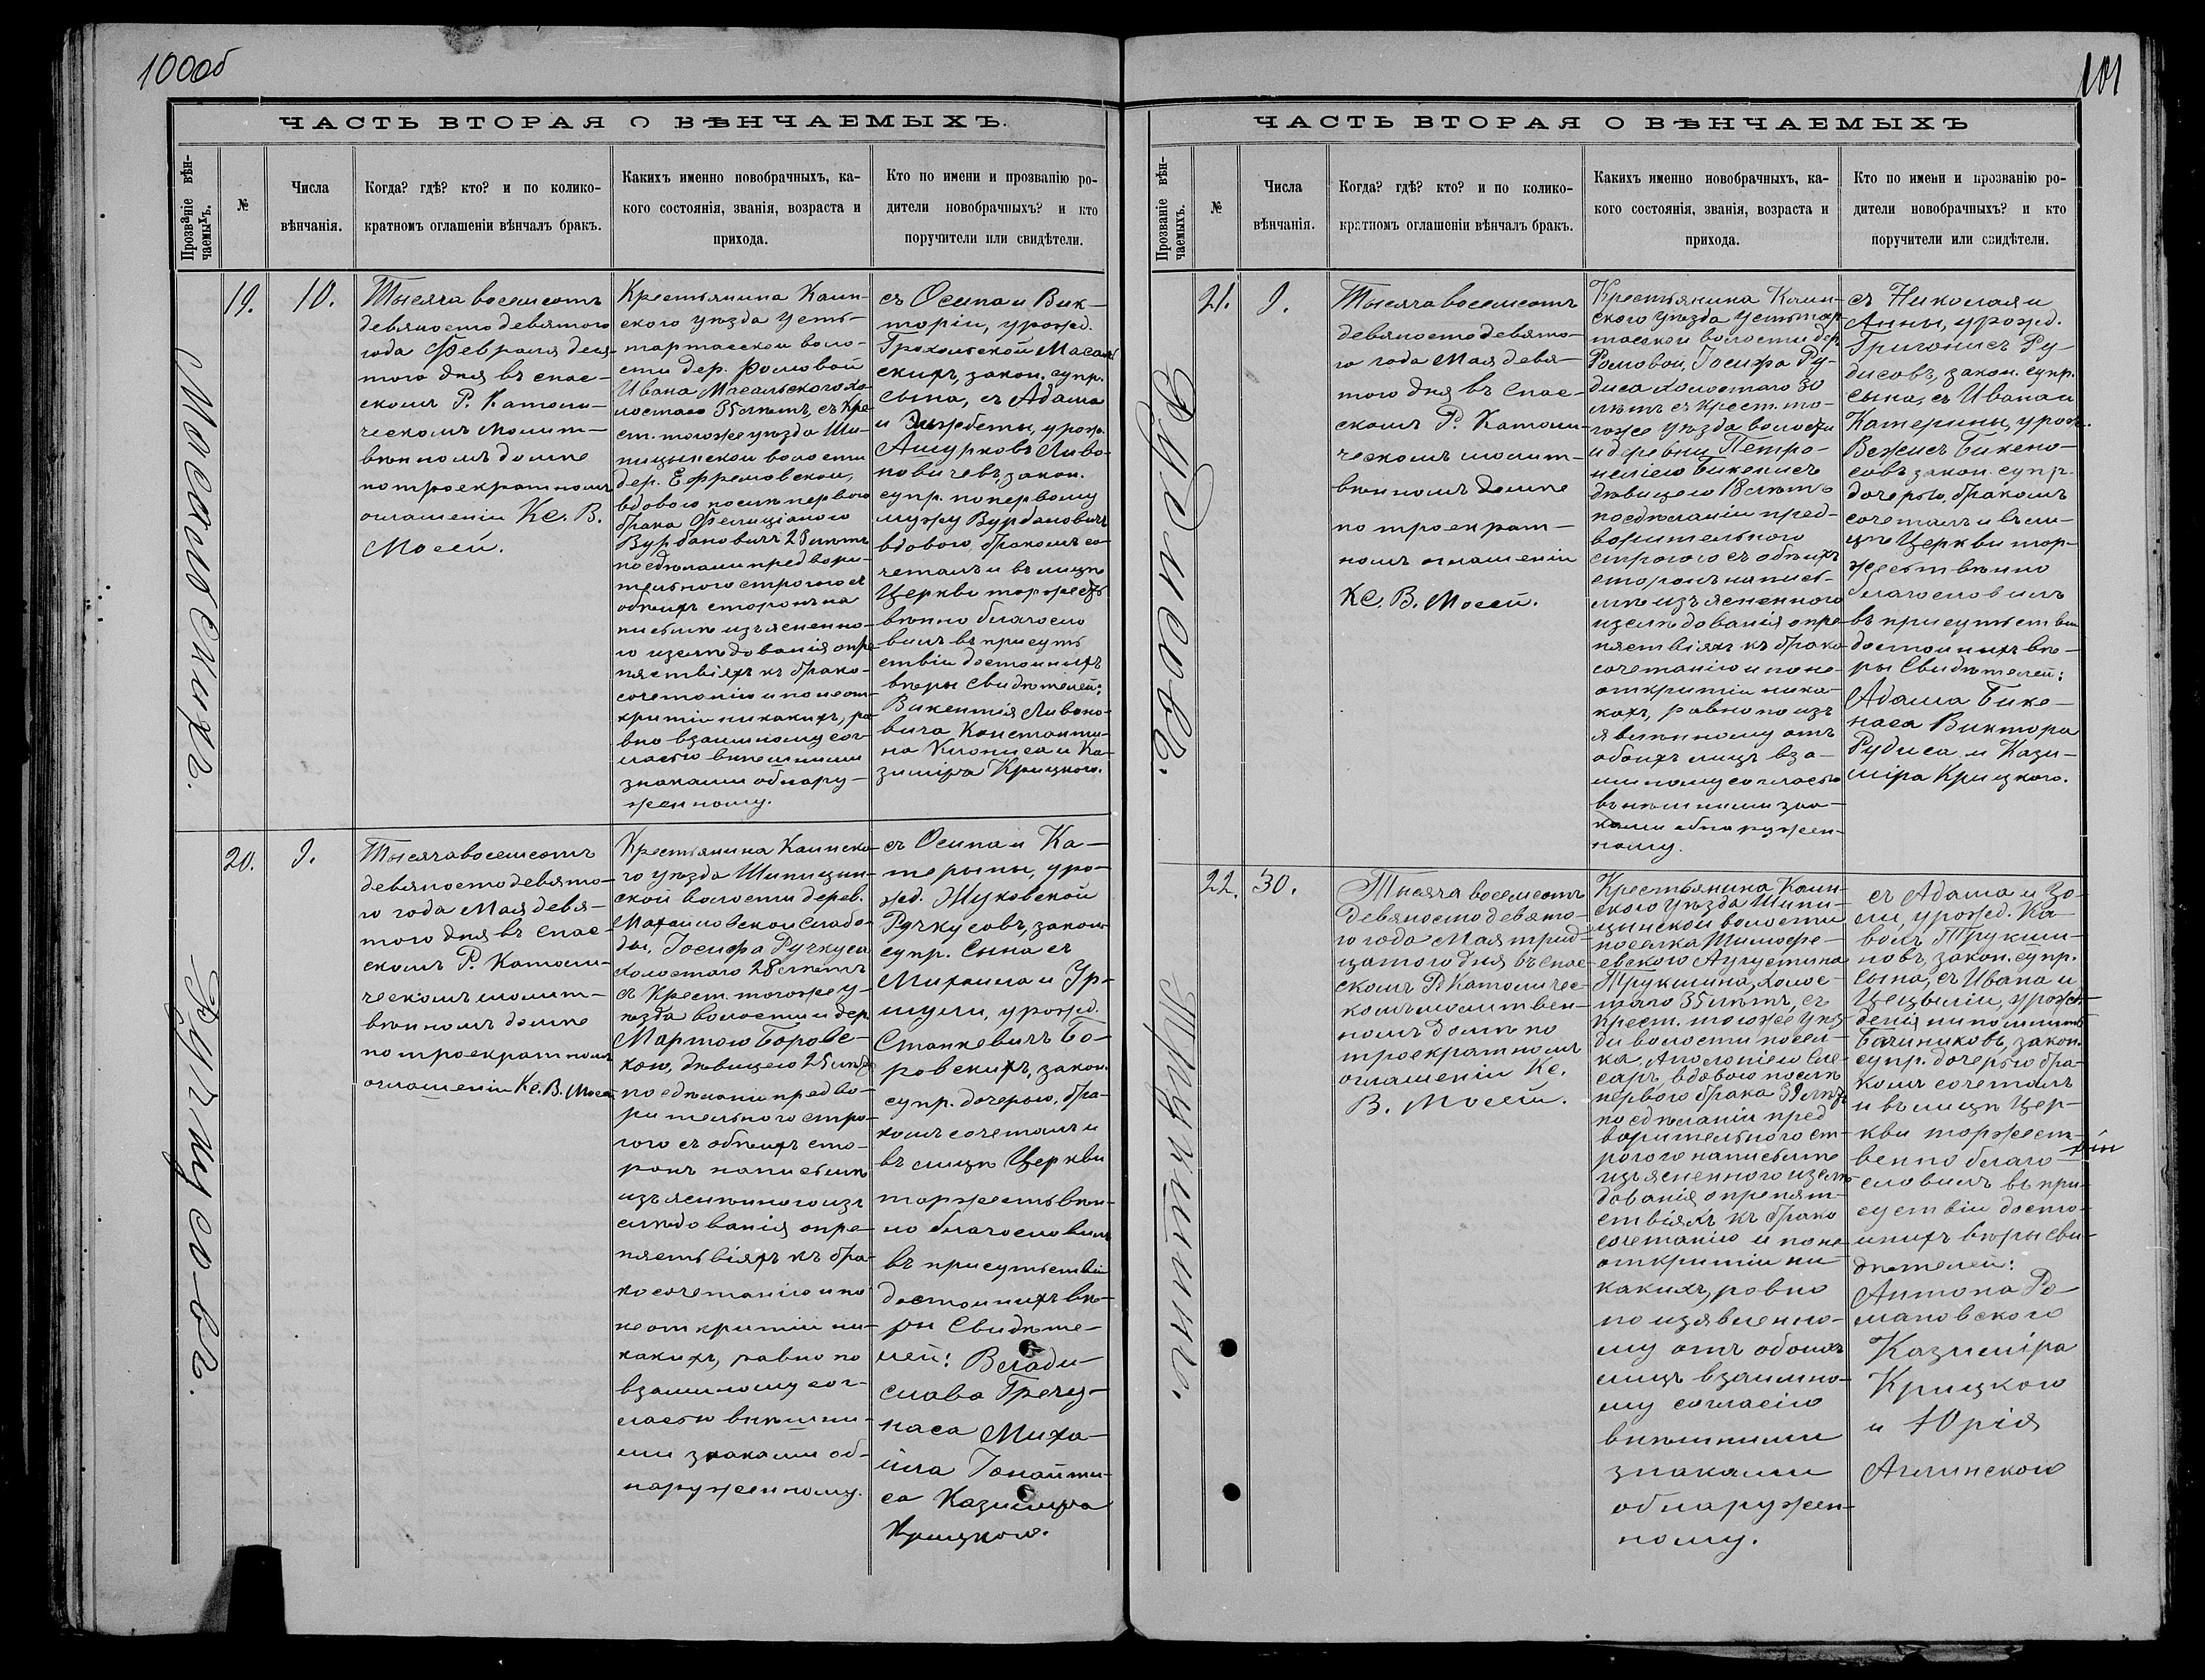 100об
ЧАСТЬ ВТОРАЯ О ВѢНЧАЕМЫХЪ.
Прозваніе вѣн-
чаемыхъ.
№
Числа
вѣнчанія.
Когда? гдѣ? кто? и по колико-
кратномъ оглашеніи вѣнчалъ бракъ.
Какихъ именно новобрачныхъ, ка-
кого состоянія, званія, возраста и
прихода.
Кто по имени и прозванію ро-
дители новобрачныхъ? и кто
поручители или свидѣтели.
Масальскихъ.
19.
10.
Тысяча восемсотъ
девяносто девятого
года Февраля деся-
того дня въ Спас-
скомъ Р. Католи-
ческомъ молит-
вѣнномъ домѣ
по троекратномъ
оглашеніи Кс. В.
Мосей.
Крестьянина Каин-
ского уѣзда Усть-
тартасской воло-
сти дер. Фомовой
Ивана Масальского хо-
лостого 35 лѣтъ, съ Кре-
ст. тогоже уѣзда Ши-
пицынской волости
дер. Ефремовской,
вдового послѣ первого
брака Фелиціаною
Вурбановичъ 25 лѣтъ
по сдѣлани предвори-
тельного строгого съ
обѣихъ сторонъ на
письмѣ изъясненно-
го изслѣдованія о пре-
пятствіяхъ къ брако-
сочетанію и по неот-
критіи никакихъ, ра-
вно взаимному сог-
ласію внешними
знаками обнару-
женному.
съ Осипа и Вик-
торіи, урожд.
Грохольской Масаль-
скихъ, закон. супр.
сына, съ Адама
и Эльжбеты, урож.
Ашурковъ Ливо-
новичевъ, закон.
супр. по первому
мужу Вурбановичъ
вдового, бракомъ со-
четалъ и въ лицѣ
Церкви торжест-
вѣнно благосло
вилъ въ присуть
ствіи достойнихъ
вѣры Свидѣтелей:
Викентія Ливоно-
вича Константи-
на Клониса и Ка-
зиміра Крицкого.
Ручкусовъ.
20.
9.
Тысяча восемсотъ
девяносто девято-
го года Мая девя-
того дня въ Спас-
скомъ Р. Католи-
ческомъ молит-
вѣнномъ домѣ
по троекратномъ
оглашеніи Кс. В. Мосей
Крестьянина Каинско-
го уѣзда Шипицин-
ской волости дерев.
Михайловской Слабо-
ды, Іосифа Ручкуса
холостого 28 лѣтъ
съ Крест. тогоже у-
ѣзда волости и дер.
Мартою Боровс-
кою, дѣвицею 25 лѣтъ
по сдѣлани предво-
рительного стро-
гого съ обѣихъ сто-
ронъ на письмѣ
изъясненного из
слѣдованія о пре-
пятствіяхъ къ бра-
косочетанію и по
не открытіи ни-
какихъ, равно по
взаимному сог-
ласію внѣшни-
ми знаками об-
наруженному.
съ Осипа и Ка-
терыны, уро-
жд. Жуковской
Ручкусовъ, закон.
супр. Сына съ
Михаила и Ур-
шули, урожд.
Станкевичъ Бо-
ровскихъ, закон.
супр. дочерью, бра-
комъ сочеталъ и
въ лицѣ Церкви
торжествѣн-
но благословилъ
въ присутствіи
достойнихъ вѣ-
ры Свидѣте-
лей: Влади-
слава Гречу-
наса Миха-
ила Іонайти-
са Казиміра
Крицкого.
101
ЧАСТЬ ВТОРАЯ О ВѢНЧАЕМЫХЪ
Прозваніе вѣн-
чаемыхъ.
№
Числа
вѣнчанія.
Когда? гдѣ? кто? и по колико-
кратномъ оглашеніи вѣнчалъ бракъ.
Какихъ именно новобрачныхъ, ка-
кого состоянія, званія, возраста и
прихода.
Кто по имени и прозванію ро-
дители новобрачныхъ? и кто
поручители или свидѣтели.
Рудисовъ.
21.
9.
Тысяча восемсотъ
девяносто девято-
го года Мая девя-
того дня въ Спас-
скомъ Р. Католи-
ческомъ молит-
вѣнномъ домѣ
по троекрат-
номъ оглашеніи
Кс. В. Мосей.
Крестьянина Каин-
ского уѣзда Устьтар-
тасской волости дер.
Фомовой, Іосифа Ру-
диса холостого 30
лѣтъ съ Крест. то-
гоже уѣзда волости
и деревни Петро-
нелею Бикенисъ
дѣвицею 18 лѣтъ
по сдѣланіи пред-
ворительного
строгого съ обѣихъ
сторонъ на пись-
мѣ изъясненного
изслѣдованія о пре-
пятствіяхъ къ брако
сочетанію и по не-
откритіи ника-
кихъ, равно по изъ
явлѣнному отъ
обоихъ лицъ вза-
имному согласію
внѣшними зна-
ками обнаружен-
ному.
съ Николая и
Анны, урожд.
Григонисъ Ру-
дисовъ, закон. супр.
сына, съ Ивана и
Катерины, урож.
Вежисъ Бикено-
совъ закон. супр.
дочерью, бракомъ
сочеталъ и въ ли-
цѣ Церкви тор-
жествѣнно
благословилъ
въ присутствіи
достойнихъ вѣ-
ры Свидѣтелей:
Адама Бике-
наса Виктора
Рудиса и Кази-
міра Крицкого.
22.
30.
Тисяча восемсотъ
девяносто девято-
го года Мая трид-
цатого дня въ Спас-
скомъ Р. Католичес-
комъ молитвен-
номъ домѣ по
троекратномъ
оглашеніи Кс.
В. Мосей.
Крестьянина Каин-
ского уѣзда Шипи-
цинской волости
поселка Тимофе-
евского Августина
Трукшина, холос-
того 35 лѣтъ, съ
Крест. тогоже уѣз
да волости посел-
ка, Аполоніею Сле-
саръ, вдовою послѣ
первого брака 39 лѣтъ
по сдѣланіи пред
ворительного ст-
рогого на письмѣ
изъясненного изслѣ-
дованія о препят-
ствіяхъ къ брако
сочетанію и по не
откритіи ни-
какихъ, ровно
по изявленно-
му отъ обоихъ
лицъ взаимно-
му согласію
внѣшними
знаками
обнаружен-
ному.
съ Адама и Зо-
ли, урожд. Ка-
волъ Трукши-
новъ, закон. супр.
сына, съ Ивана и
Цецыліи, урож-
денія ни помнитъ
Бачниковъ, закон.
супр. дочерью бра-
комъ сочеталъ
и въ лицѣ Цер-
кви торжест-
венно благо-
словилъ въ при-
суствіи досто-
инихъ вѣры сви-
дѣтелей:
Антона Ро-
мановского
Казиміра
Крицкого
и Юрія
Аглинского